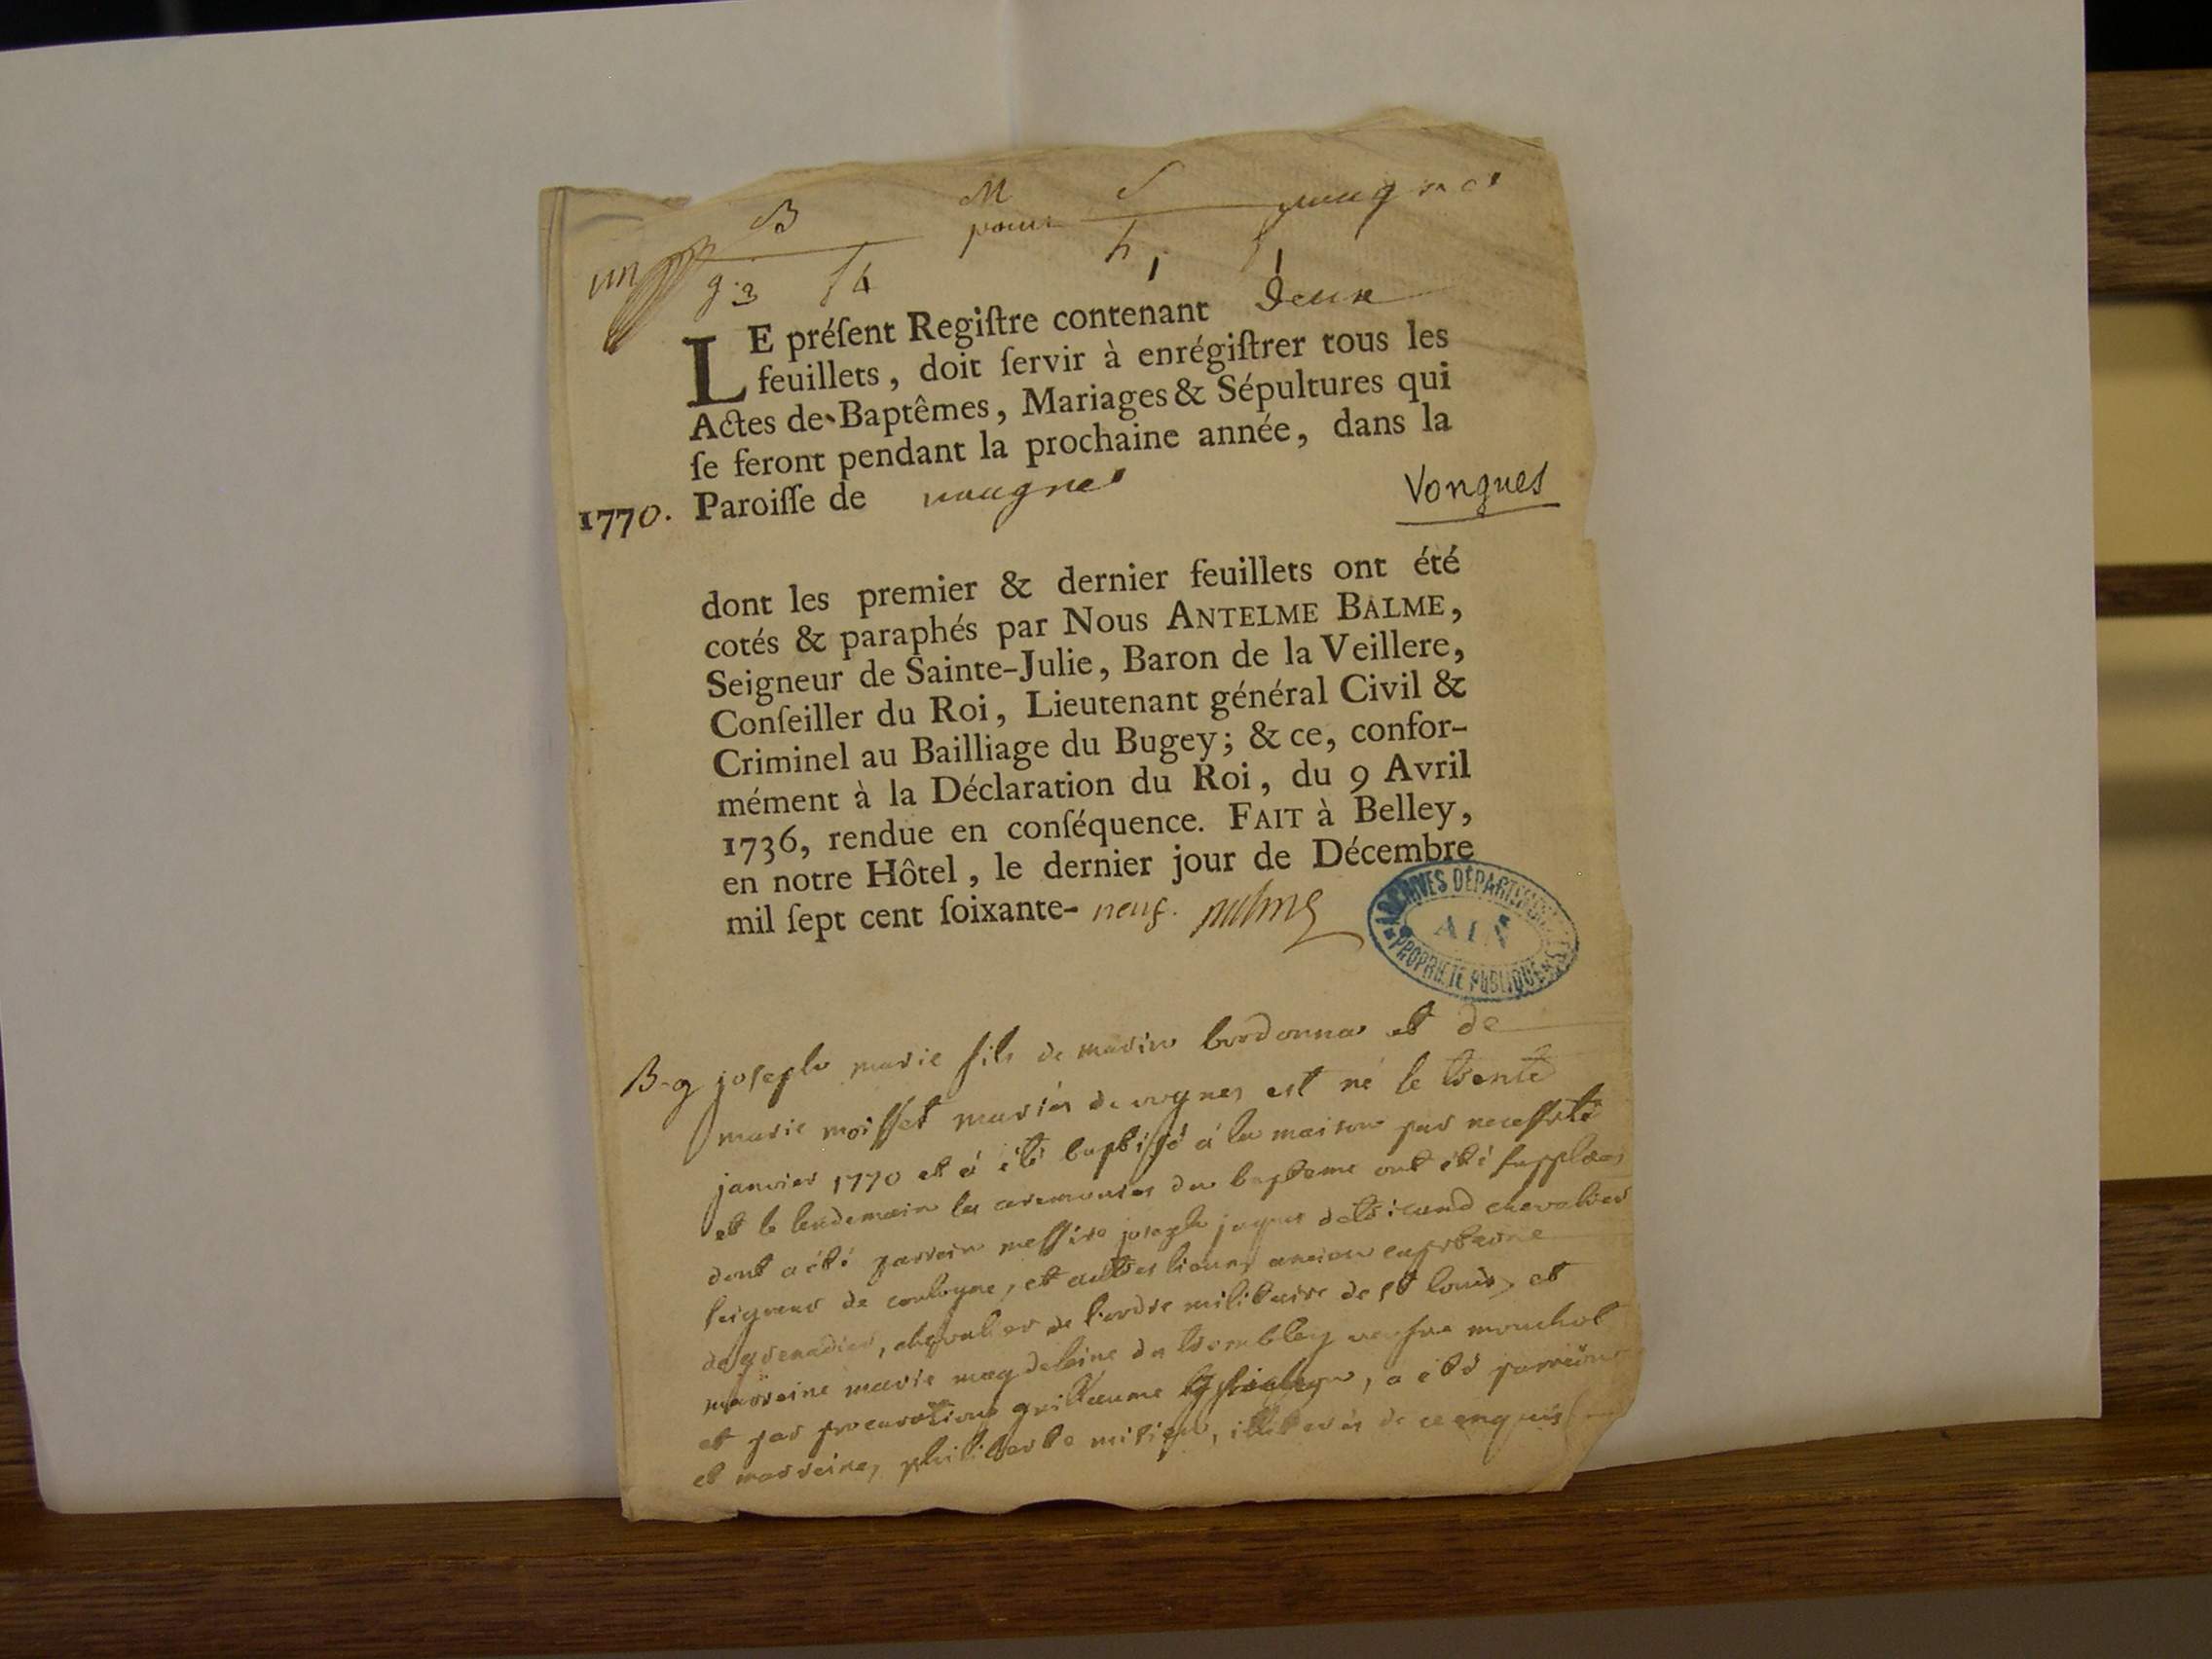 B M S
un pour
g 3 f 4 h 1 f 1
LE préſent Regiſtre contenant Deux
feuillets, doit ſervir à enrégiſtrer tous les
Actes de Baptêmes, Mariages & Sépultures qui
ſe feront pendant la prochaine année, dans la
1770. Paroiſſe de vougnes
Vongnes
dont les premier & dernier feuillets ont été
cotés & paraphés par Nous ANTELME BALME,
Seigneur de Sainte-Julie, Baron de la Veillere,
Conſeiller du Roi, Lieutenant général Civil &
Criminel au Bailliage du Bugey; & ce, confor-
mément à la Déclaration du Roi, du 9 Avril
1736, rendue en conſéquence. FAIT à Belley,
en notre Hôtel, le dernier jour de Décembre
mil ſept cent ſoixante- neuf. Balme
ARCHIVES DÉPARTEMENTALES
AIN
PROPRIÉTÉ PUBLIQUE
B-g joseph marie fils de marin bordonna et de
marie moisset mariés de vognes est né le trente
janvier 1770 et a été baptisé à la maison par necessité
et le lendemain les ceremonies du bapteme ont été supplées
dont a été parrein messire joseph jaques chevalier
seigneur de et autres lieux, ancien capitaine
de grenadier, chevalier de l'ordre militaire de st louis, et
marreine marie magdeleine du veufve mouchot
et par procuration guillaume a été parrein
et marreine, philiberte illiterés de ce enquis